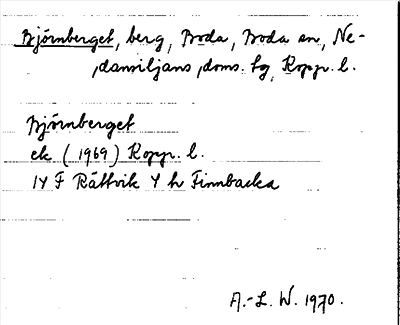 Björnberget, berg, Boda, Boda sn, Ne-
dansiljans, doms. tg, Kopp. l.
Björnberget
ek (1969) Kopp. l.
14 F Rättvik 4 h Finnbacka
A.-L. W. 1970.